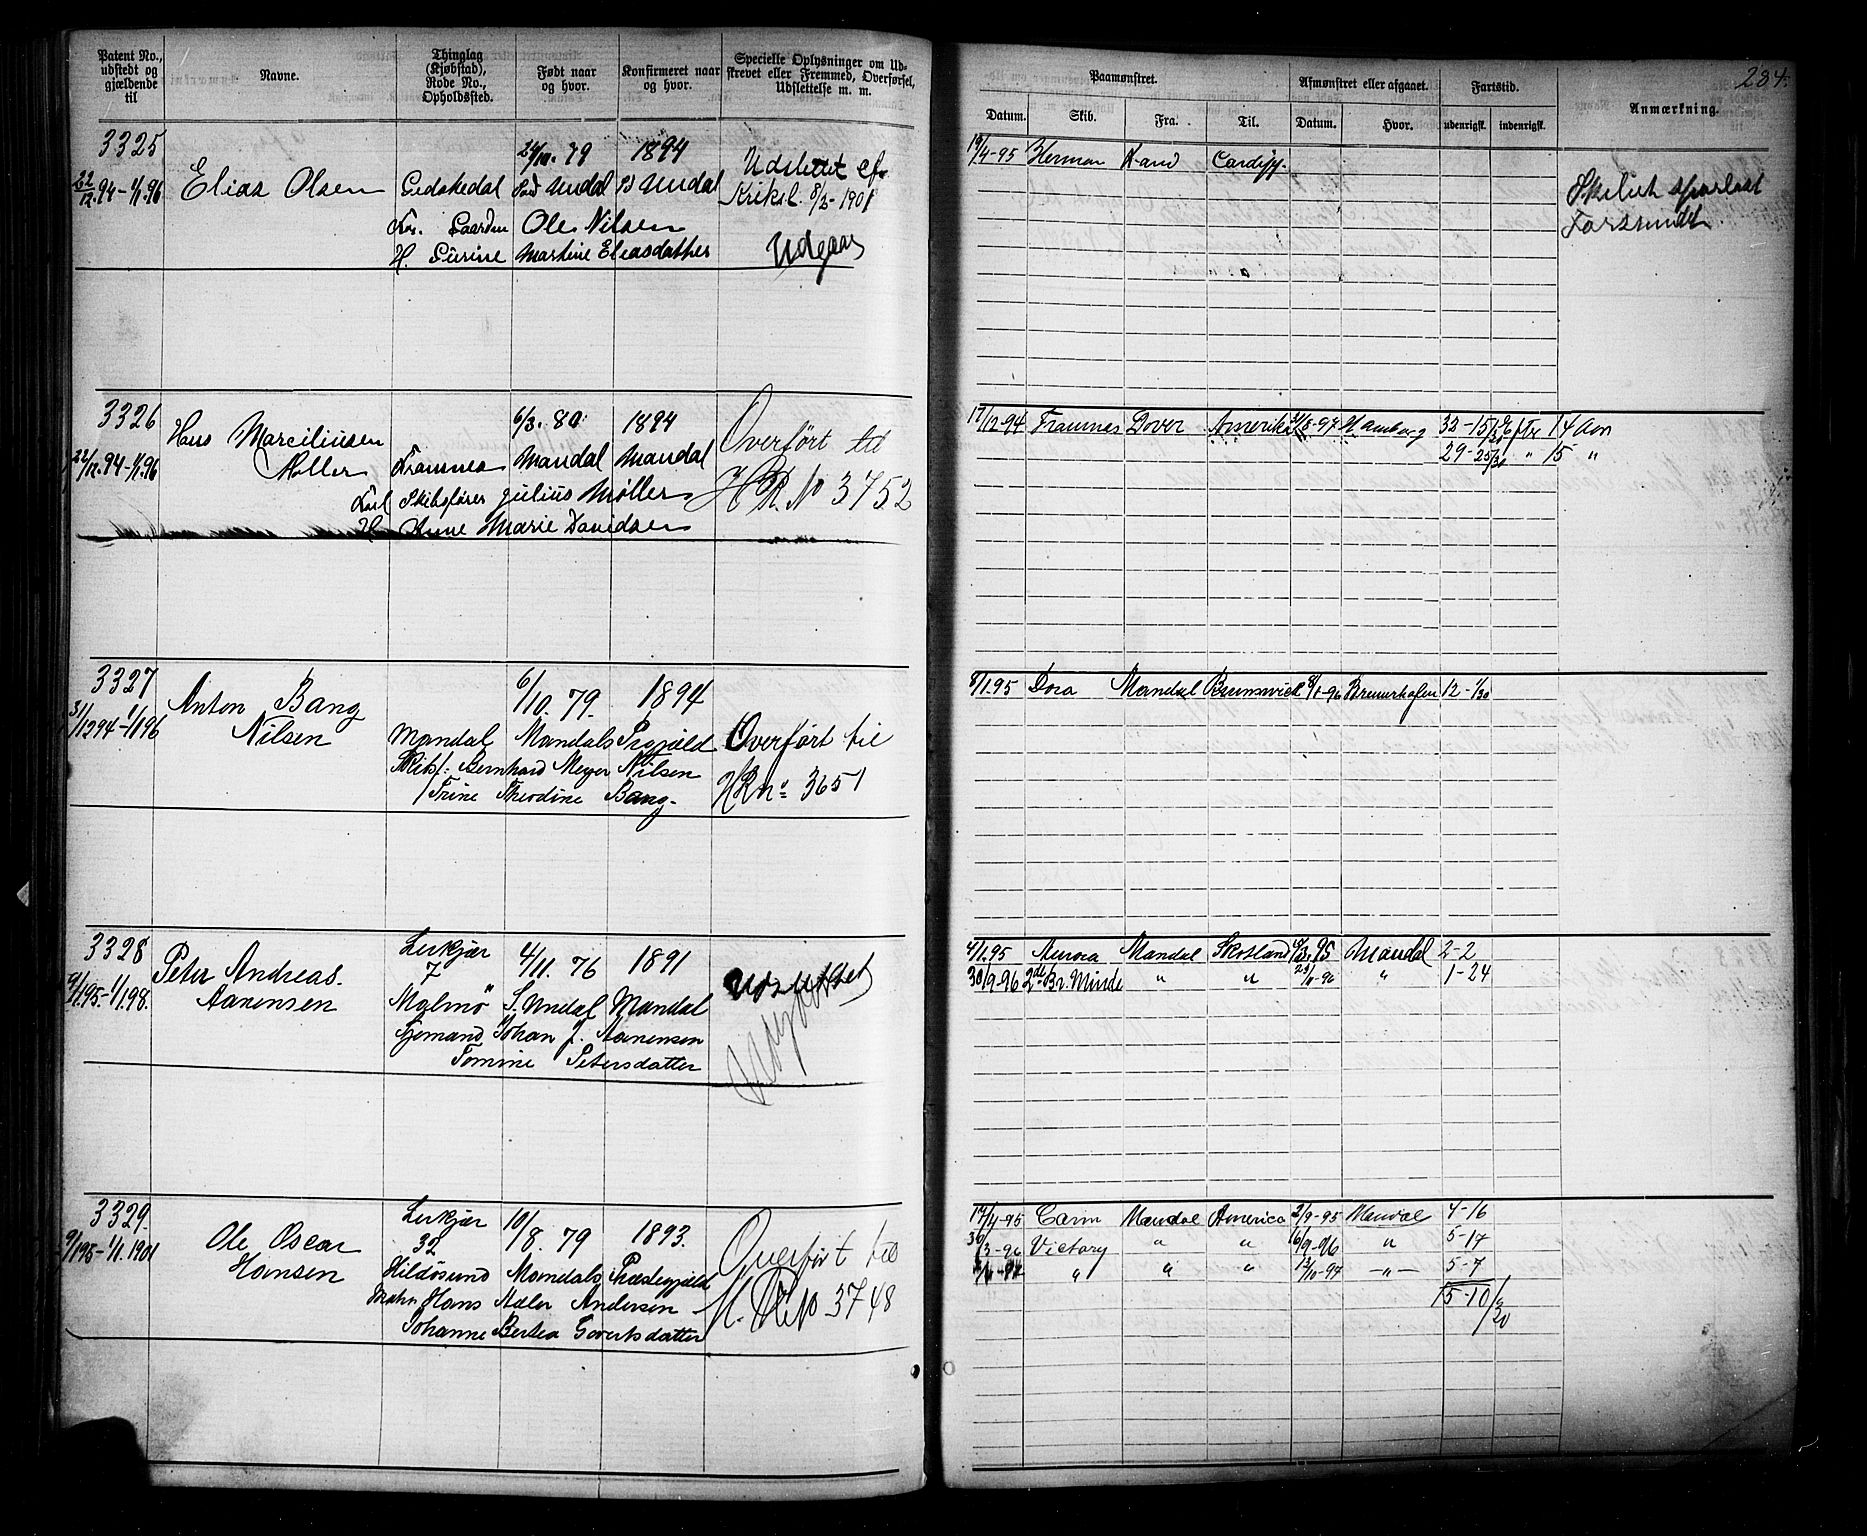 234.
Patent No., udstedt og gjældende til
Navne.
Thinglag (Kjøbstad), Rode No., Opholdssted.
Født naar og hvor.
Konfirmeret naar og hvor.
Specielle Oplysninger om Udskrevet eller Fremmed, Overførsel, Udslettelse m. m.
Paamønstret.
Afmønstret eller afgaaet.
Fartstid.
Anmærkning.
Datum. Skib. Fra. Til. Datum. Hvor. udenrigsk. indenrigsk.
3325
22/12.94-1/1.96
Elias Olsen
Gedskedal
79 1894
Undal Undal
Ole Nilsen
H. Gurine Martine Eliasdatter
Udslettet ef.
Kriksl. 8/2-1901
Udgaar
19/4-95 Herman Xsand Cardiff
Skibet sporløst
Forsvundet
3326
22/12.94-1/1.96
Hans Marciliusen
Møller
Framnes
6/3. 80 1894
Mandal Mandal
Skibsfører Julius Møller
H. Anne Marie Davidsen
Overført til
H R. No 3752
17/12-94 Framnes Dover Amerika 31/8-97 Hamborg 32-15/30 efter 14 Aar
29-25/30 " 15 "
3327
31/1294-1/196
Anton Bang
Nilsen
6/10. 79. 1894
Mandal Mandals Prgjæld
Skibsf: Bernhard Meyer Nilsen
/Trine Theodine Bang-
Overført til
HR no 3651
8/1.95 Dora Mandal Brunsvick 8/1-96 Bremerhafen 12-1/30
3328
4/1.95-1/1.98.
Peter Andreas.
Aanensen
Lerkjær
7
4/11. 76 1891
Malmö S. Undal Mandal
Johan J. Aanensen
Tomine Petersdatter
Udslettet
4/1.95 Aurora Mandal Skotland 6/3.95 Mandal 2-2
30/9-96 2de Br. Minde " " 23/11-96 " 1-24
3329.
9/195-1/1.1901
Ole Oscar
Hansen
Lerkjær
32
10/8. 79 1893.
Hildøsund Mandals Præstegjæld
Hans Adler Andersen
Johanne Bertea Govertsdatter
Overført til
H. R No 3748
17/4-95 Carin Mandal America 2/9-95 Mandal 4-16
30/3-96 Victory " " 16/9-96 " 5-17
" " " 12/10-97 -"- 5-7
15-10/20